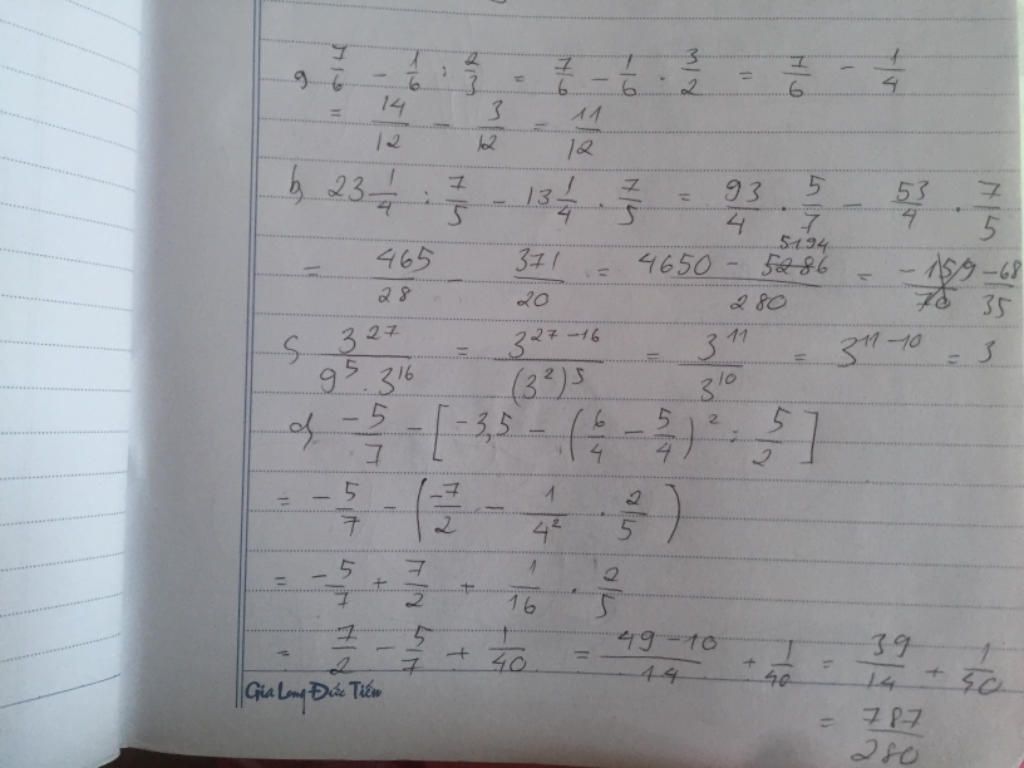 a, 7/6 - 1/6 : 2/3 = 7/6 - 1/6 . 3/2 = 7/6 - 1/4
= 14/12 - 3/12 = 11/12
b, 23 1/4 : 7/5 - 13 1/4 . 7/5 = 93/4 . 5/7 - 53/4 . 7/5
= 465/28 - 371/20 = (4650 - 5194)/280 = -68/35
c, 3^27/(9^5 . 3^16) = 3^(27-16)/(3^2)^5 = 3^11/3^10 = 3^(11-10) = 3
d, -5/7 - [-3,5 - (6/4 - 5/4)^2 : 5/2]
= -5/7 - (-7/2 - 1/4^2 . 2/5)
= -5/7 + 7/2 + 1/16 . 2/5
= 7/2 - 5/7 + 1/40 = (49 - 10)/14 + 1/40 = 39/14 + 1/40
Gia Long Đức Tiến
= 787/280